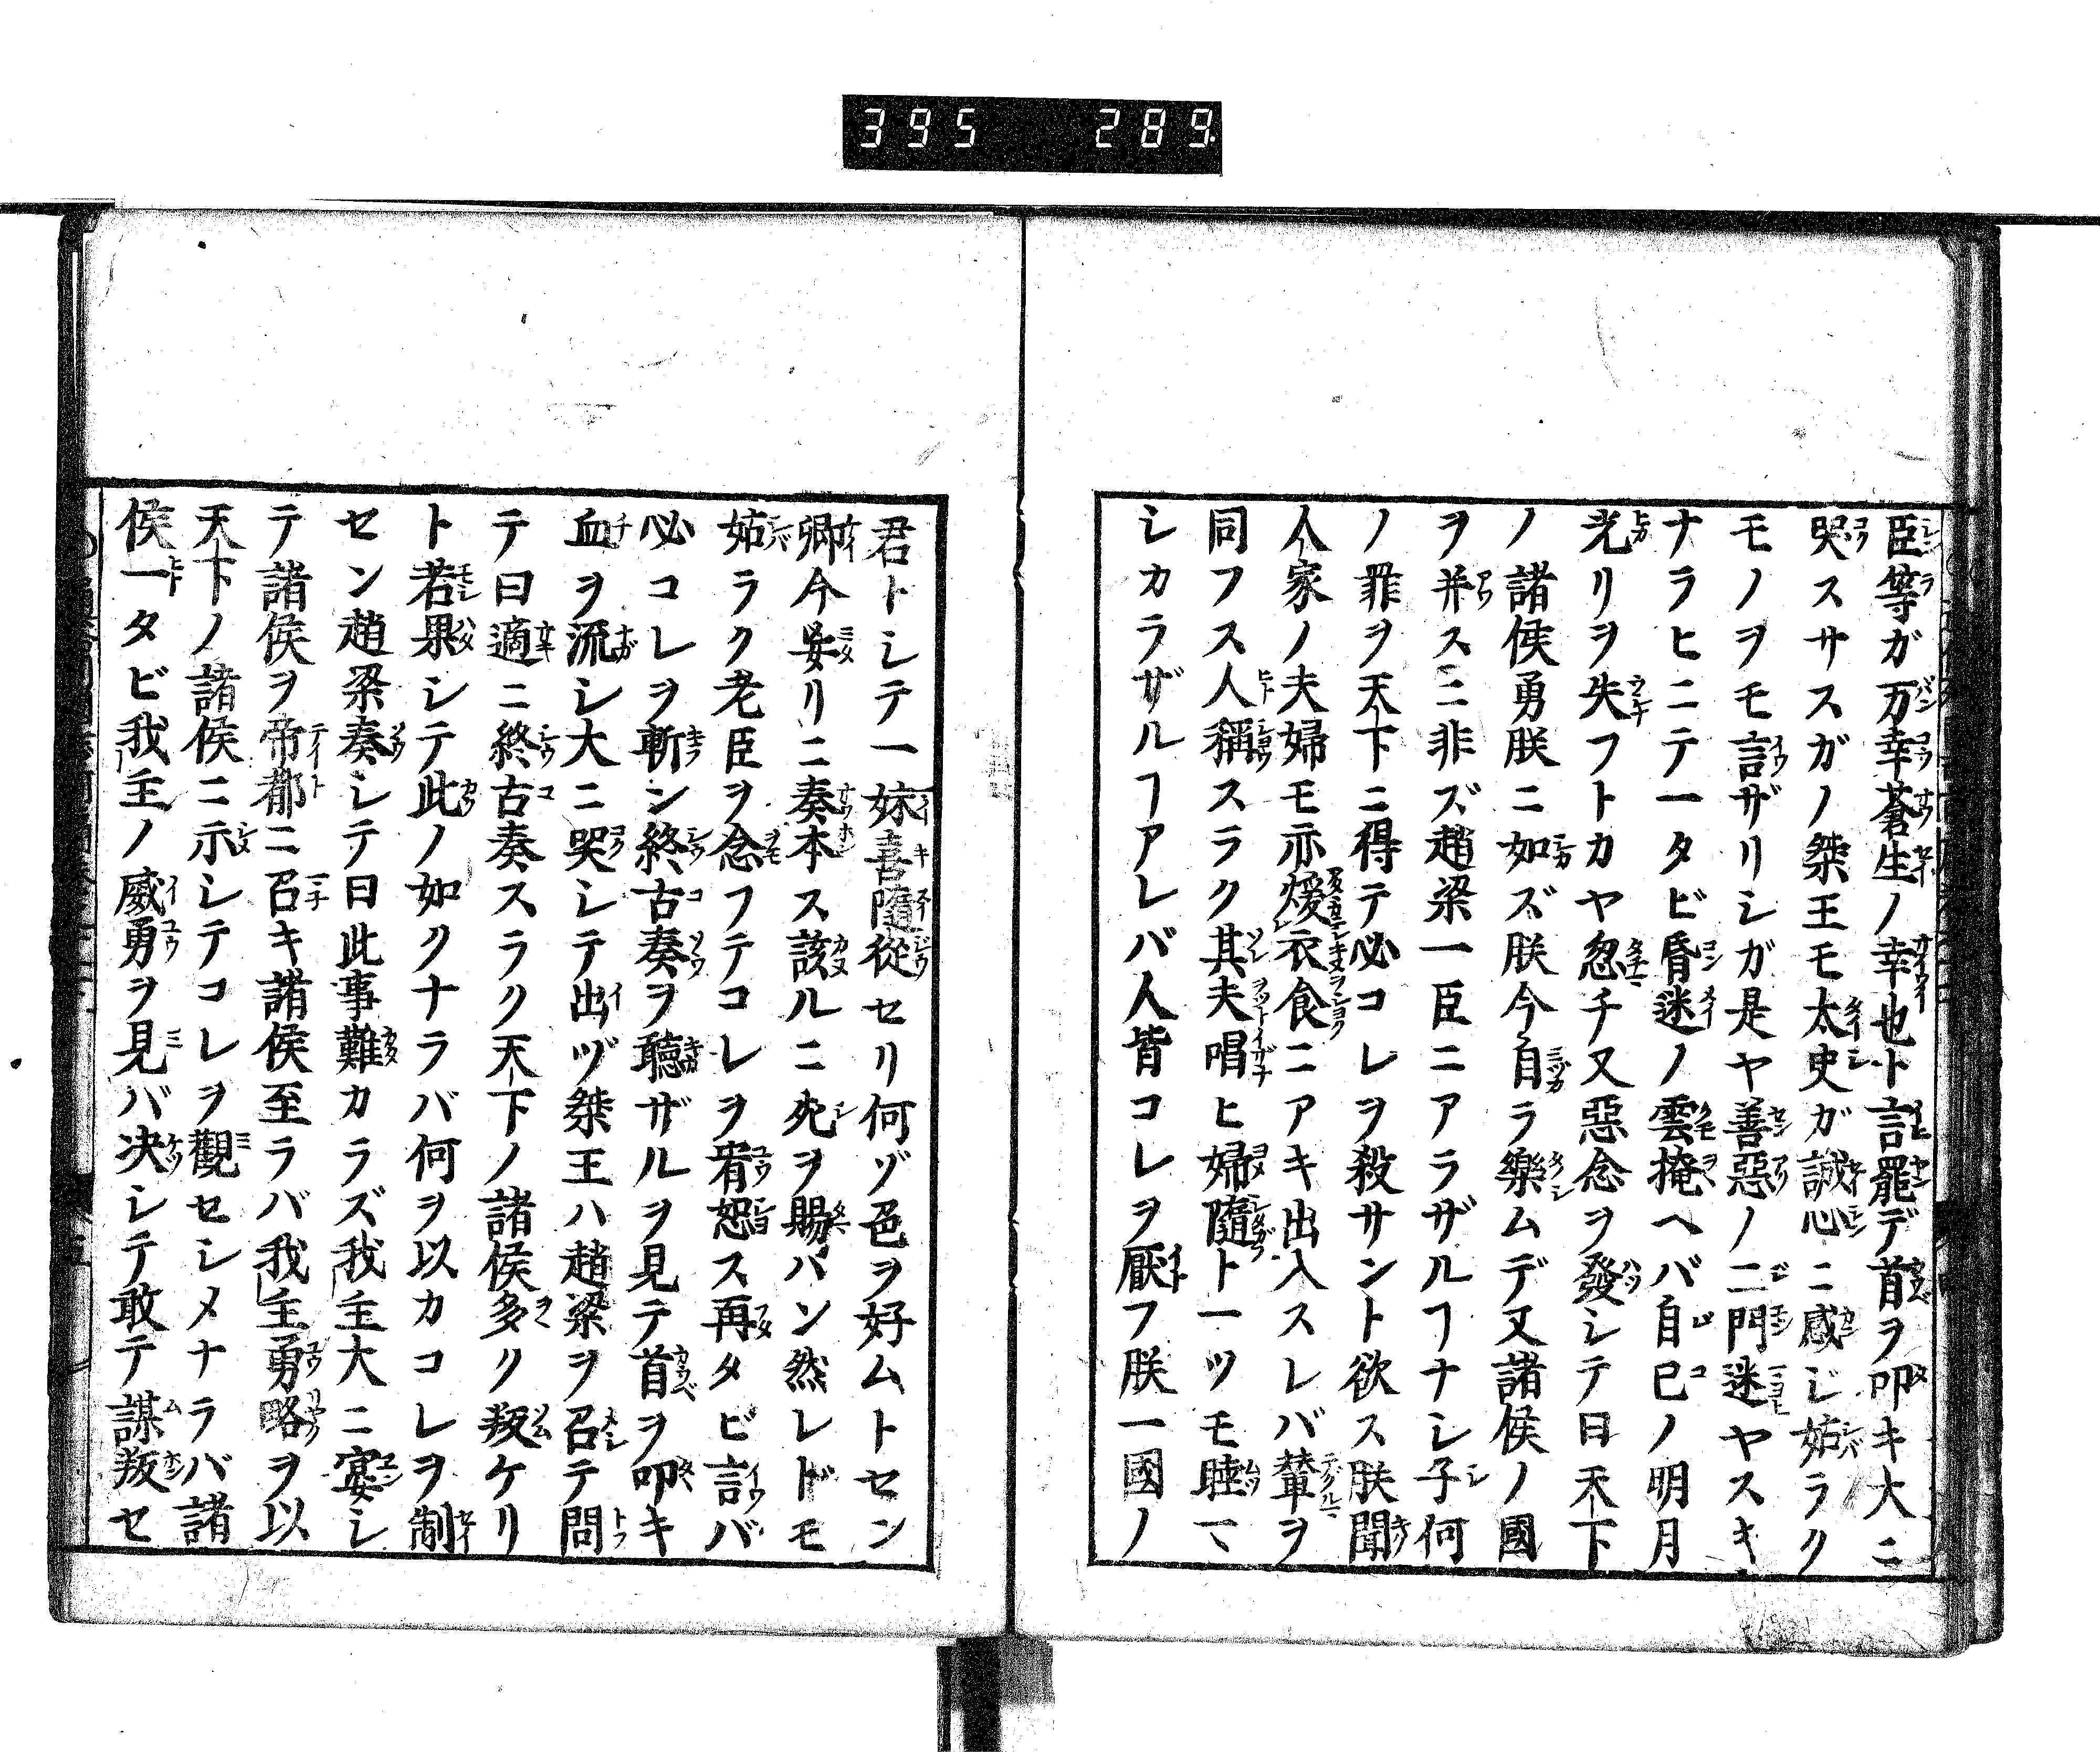 395 289
臣等ガ万幸蒼生ノ幸也ト言罷デ首ヲ叩キ大ニ
哭スサスガノ桀王モ太史ガ誠心ニ感ジ姑ラク
モノヲモ言ザリシガ是ヤ善惡ノ二門迷ヤスキ
ナラヒニテ一タビ昏迷ノ雲掩ヘバ自己ノ明月
光リヲ失フトカヤ忽チ又惡念ヲ發シテ曰天下
ノ諸侯勇朕ニ如ズ朕今自ラ樂ムデ又諸侯ノ國
ヲ并スニ非ズ趙梁一臣ニアラザルヿナシ子何
ノ罪ヲ天下ニ得テ必コレヲ殺サント欲ス朕聞
人家ノ夫婦モ亦煖衣食ニアキ出入スレバ輦ヲ
同フス人稱スラク其夫唱ヒ婦隨ト一ツモ睦マ
シカラザルヿアレバ人皆コレヲ厭フ朕一國ノ
君トシテ一妹喜隨從セリ何ゾ色ヲ好ムトセン
卿今妄リニ奏本ス該ルニ死ヲ賜バン然レドモ
姑ラク老臣ヲ念フテコレヲ宥恕ス再タビ言バ
必コレヲ斬ン終古奏ヲ聽ザルヲ見テ首ヲ叩キ
血ヲ流シ大ニ哭シテ出ヅ桀王ハ趙梁ヲ召テ問
テ曰適ニ終古奏スラク天下ノ諸侯多ク叛ケリ
ト若果シテ此ノ如クナラバ何ヲ以カコレヲ制
セン趙梁奏シテ曰此事難カラズ我主大ニ宴シ
テ諸侯ヲ帝都ニ召キ諸侯至ラバ我主勇略ヲ以
天下ノ諸侯ニ示シテコレヲ觀セシメナラバ諸
侯一タビ我主ノ威勇ヲ見バ决シテ敢テ謀叛セ